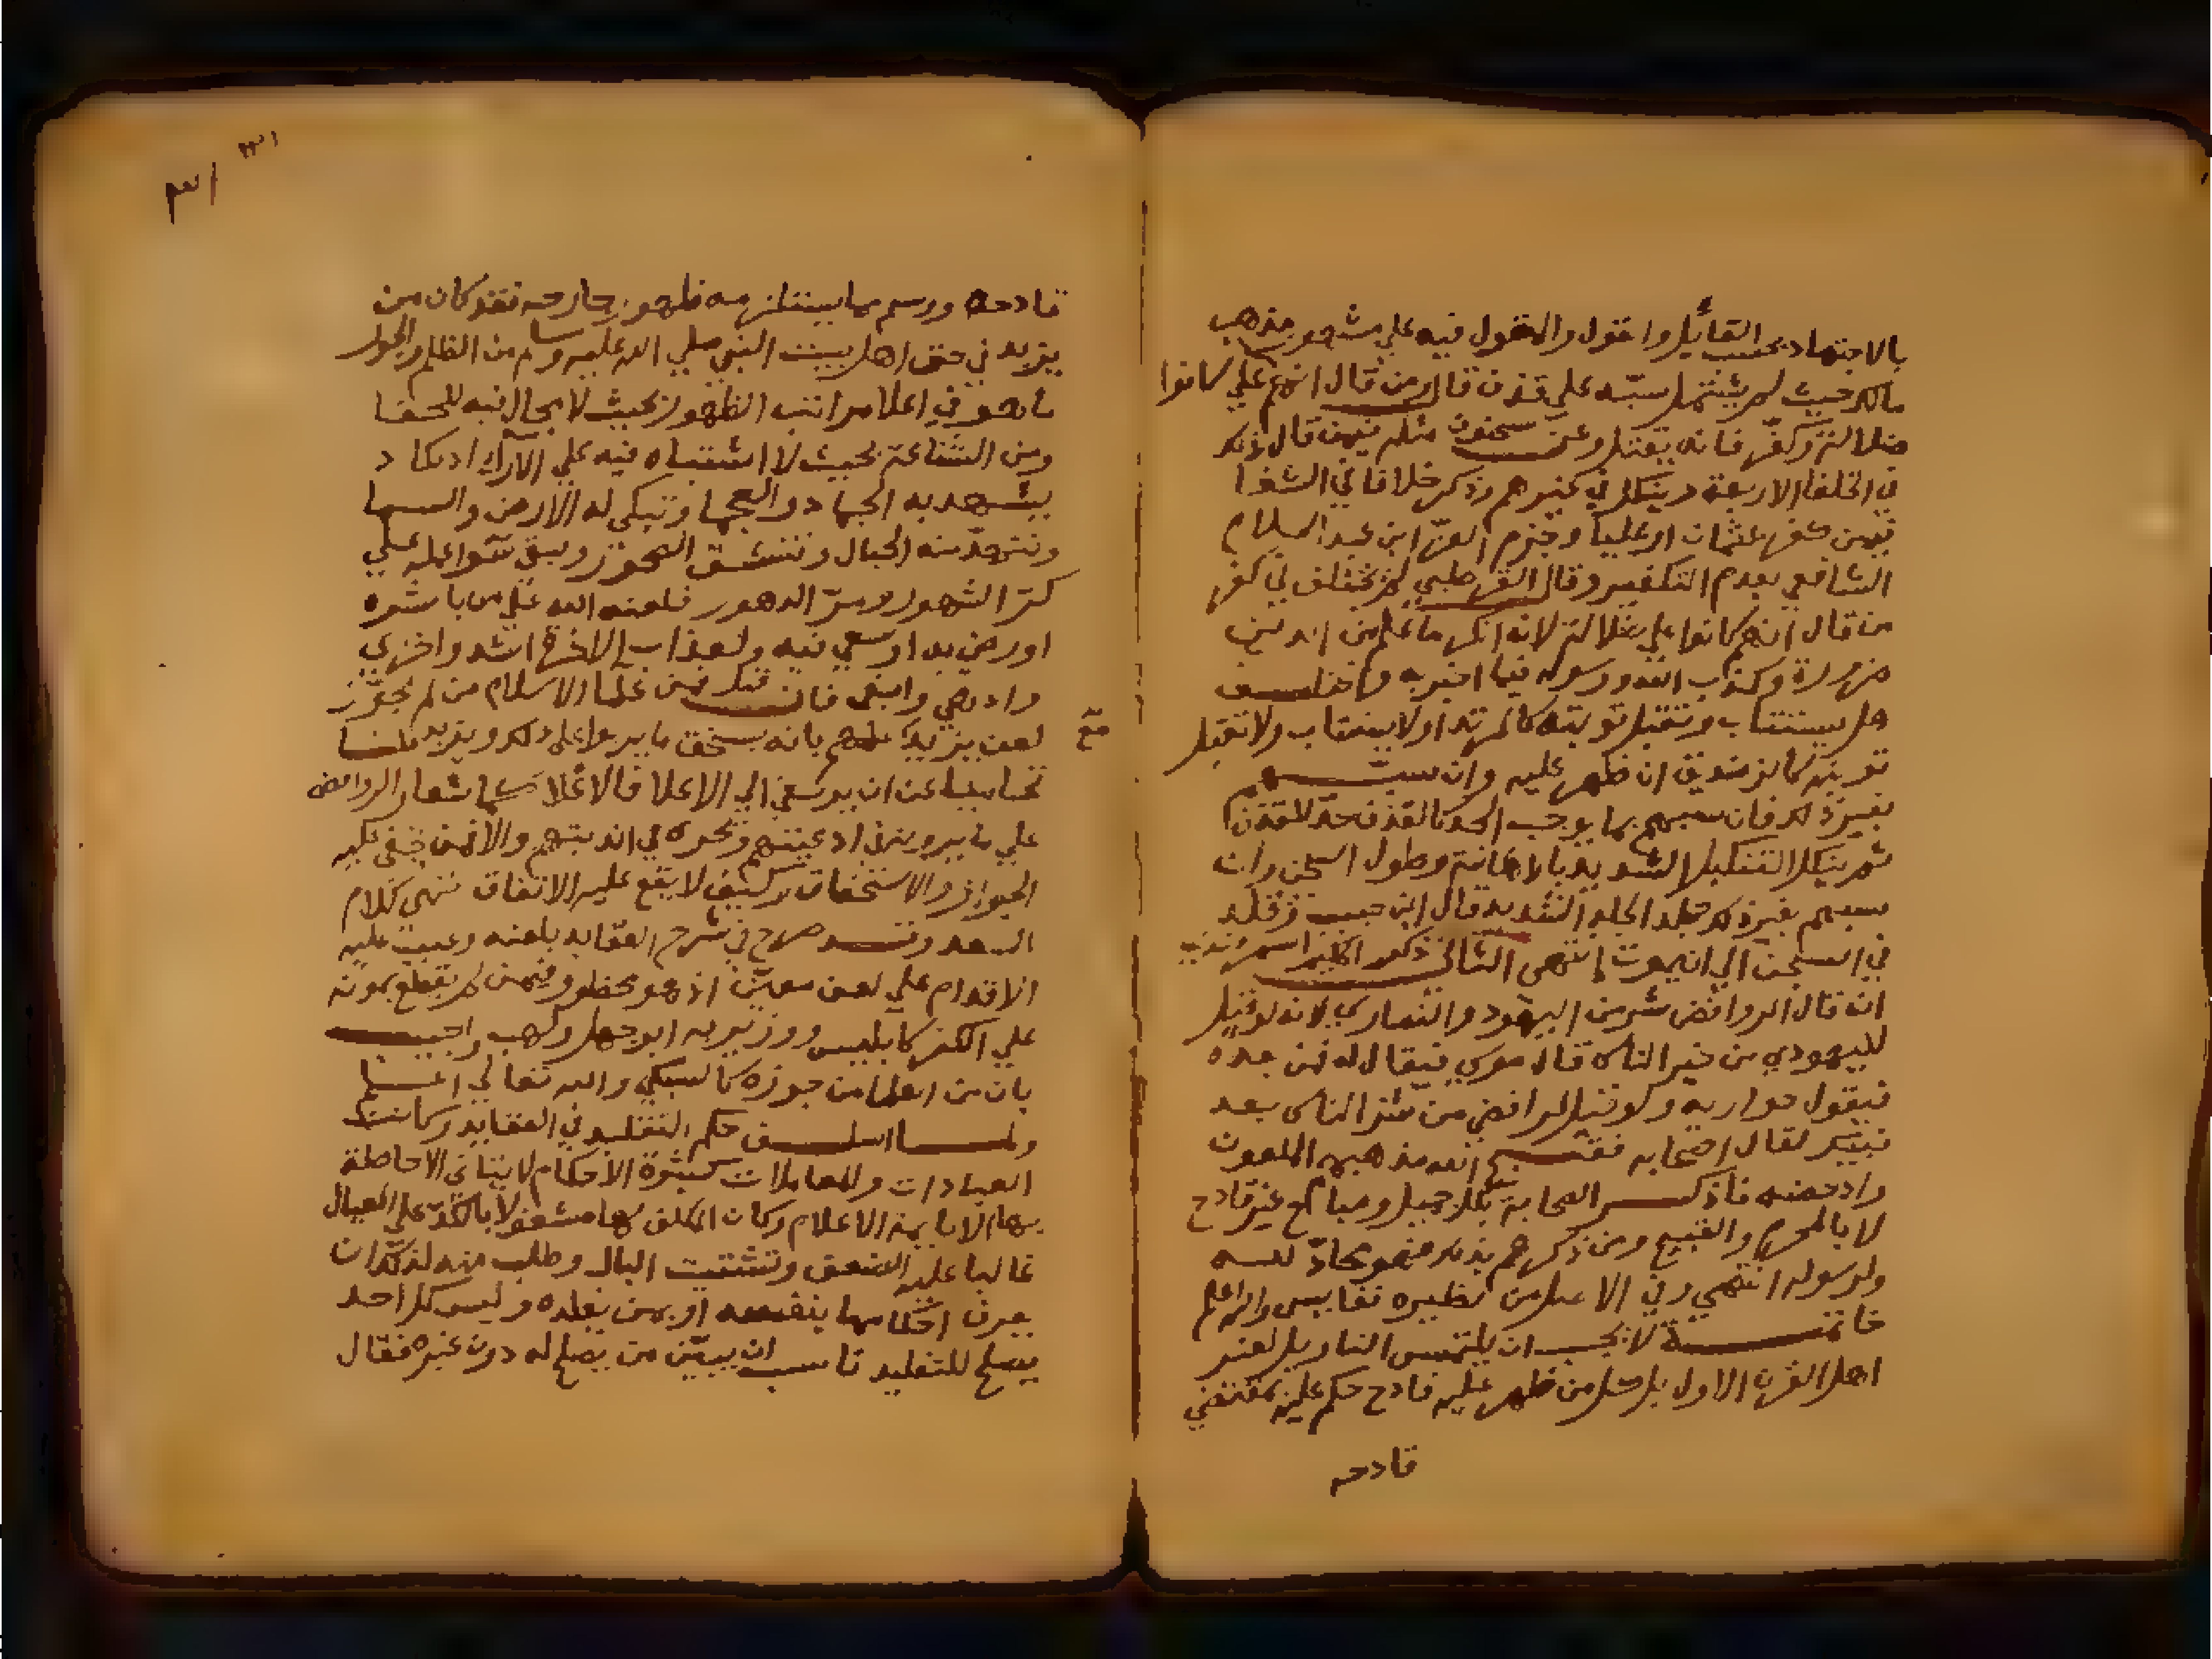 بالاجتهاد بحسب القائل واقول والمقول فيه علي مشهور مذهب
مالك حيث لم يشتمل سبّه علي قذف قال ومن قال انهم علي كانوا
ضلالة وكفر فانه يقتل وعن سحنون مثله فيمن قال ذلك
في الخلفا الاربعة وينكل في غيرهم وذكر خلافا في الشفا
فيمن كفر عثمان او عليا وجزم العزّ ابن عبد السلام
الشافعي بعدم التكفير وقال القرطبي لم يختلف في كفر
من قال انهم كانوا علي ضلالة لانه انكر ما علم من الدين
ضرورة وكذب الله ورسوله فيما اخبر به واختلف
هل يستتاب وتقبل توبته كالمرتد او لا يستتاب ولا تقبل
توبته كالزنديق ان ظهر عليه وان سبّهم
بغير ذلك فان سبهم بما يوجب الحد كالقذف حدّ للقذف
ثم ينكل التنكيل الشديد بالاهانة وطول السجن وان
سبهم بغير ذلك جلد الجلد الشديد قال ابن حبيب ويخلد
في السجن الي ان يموت انتهى الثاني ذكر
ان قال الروافض شر من اليهود والنصاري لانه لو قيل
لليهودي من خير الناس قال موسي فيقال له فمن بعده
فيقول حواريه ولو قيل للرافضي من شر الناس بعد
نبيك لقال اصحابه فقبح الله مذهبهم الملعون
وادحضه فاذكر الصحابة بكل جميل ومباح غير قادح
لا بالمحرم والقبيح ومن ذكرهم بذلك فهو محادّ لله
ولرسوله انتهي وفي الاصل من نظيره نفايس والله اعلم
خاتمة لا يجب ان يلتمس التاويل لغير
اهل القرن الاول بل كل من ظهر عليه قادح حكم عليه بمقتضي
قادحه
١٣١
٣١
قادحه ورسم بما يستلزمه ظهور جارحه فقد كان من
يزيد في حق اهل بيت النبي صلي الله عليه وسلم من الظلم والجور
ما هو في اعلا مراتب الظهور بحيث لا مجال فيه للخفا
ومن الشناعة بحيث لا اشتباه فيه علي الآراء اذ يكاد
يشهد به الجماد والعجما وتبكي له الارض والسما
وتنهدّ منه الجبال وتنشق الصخور ويبقي سوء عمله علي
كرّ الشهور ومرّ الدهور فلعنه الله علي من باشره
او رضي به او سعي فيه ولعذاب الاخرة اشد واخزي
وادهي وابقي فان قيل فمن علما الاسلام من لم يجوّز
لعن يزيد مع علمهم بانه يستحق ما يربوا علي ذلك ويزيد قلنا
تحاميا عن ان يرتقي الي الاعلا فالاعلا كما شعار الروافض
علي ما يروي في ادعيتهم ويجري في انديتهم والا فمن يخفي عليه
الجواز والاستحقاق وكيف لا يقع عليه الاتفاق انتهى كلام
السعد وقد صرح في شرح العقايد بلعنه وعيب عليه
الاقدام علي لعن معيّن اذ هو محظور فيمن لم يقطع بموته
علي الكفر كابليس ووزيريه ابو جهل ولهب واجيب
بان من العلما من جوزه كالسبكي والله تعالي اعلم
ولما اسلف حكم التقليد في العقايد وكانت
العبادات والمعاملات كثيرة الاحكام لا يتاتى الاحاطة
بها الا لايمة الاعلام وكان المكلف بها مشغولا بالكدّ علي العيال
غالبا عليه الضعف وتشتت البال وطلب منه لذلك ان
يعرف احكامها بنفسه او بمن يقلده وليس كل احد
يصلح للتقليد ناسب ان يبيّن من يصلح له دون غيره فقال